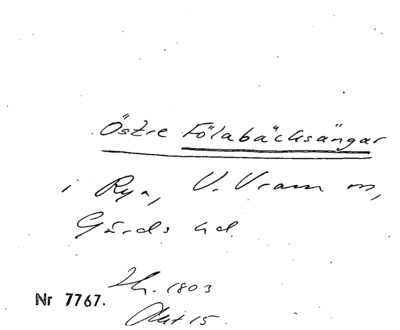 Östre Fölabäcksängar
i Rya, V. Vram m,
Gärds hd.
Lh. 1803
Okt 15.
Nr 7767.